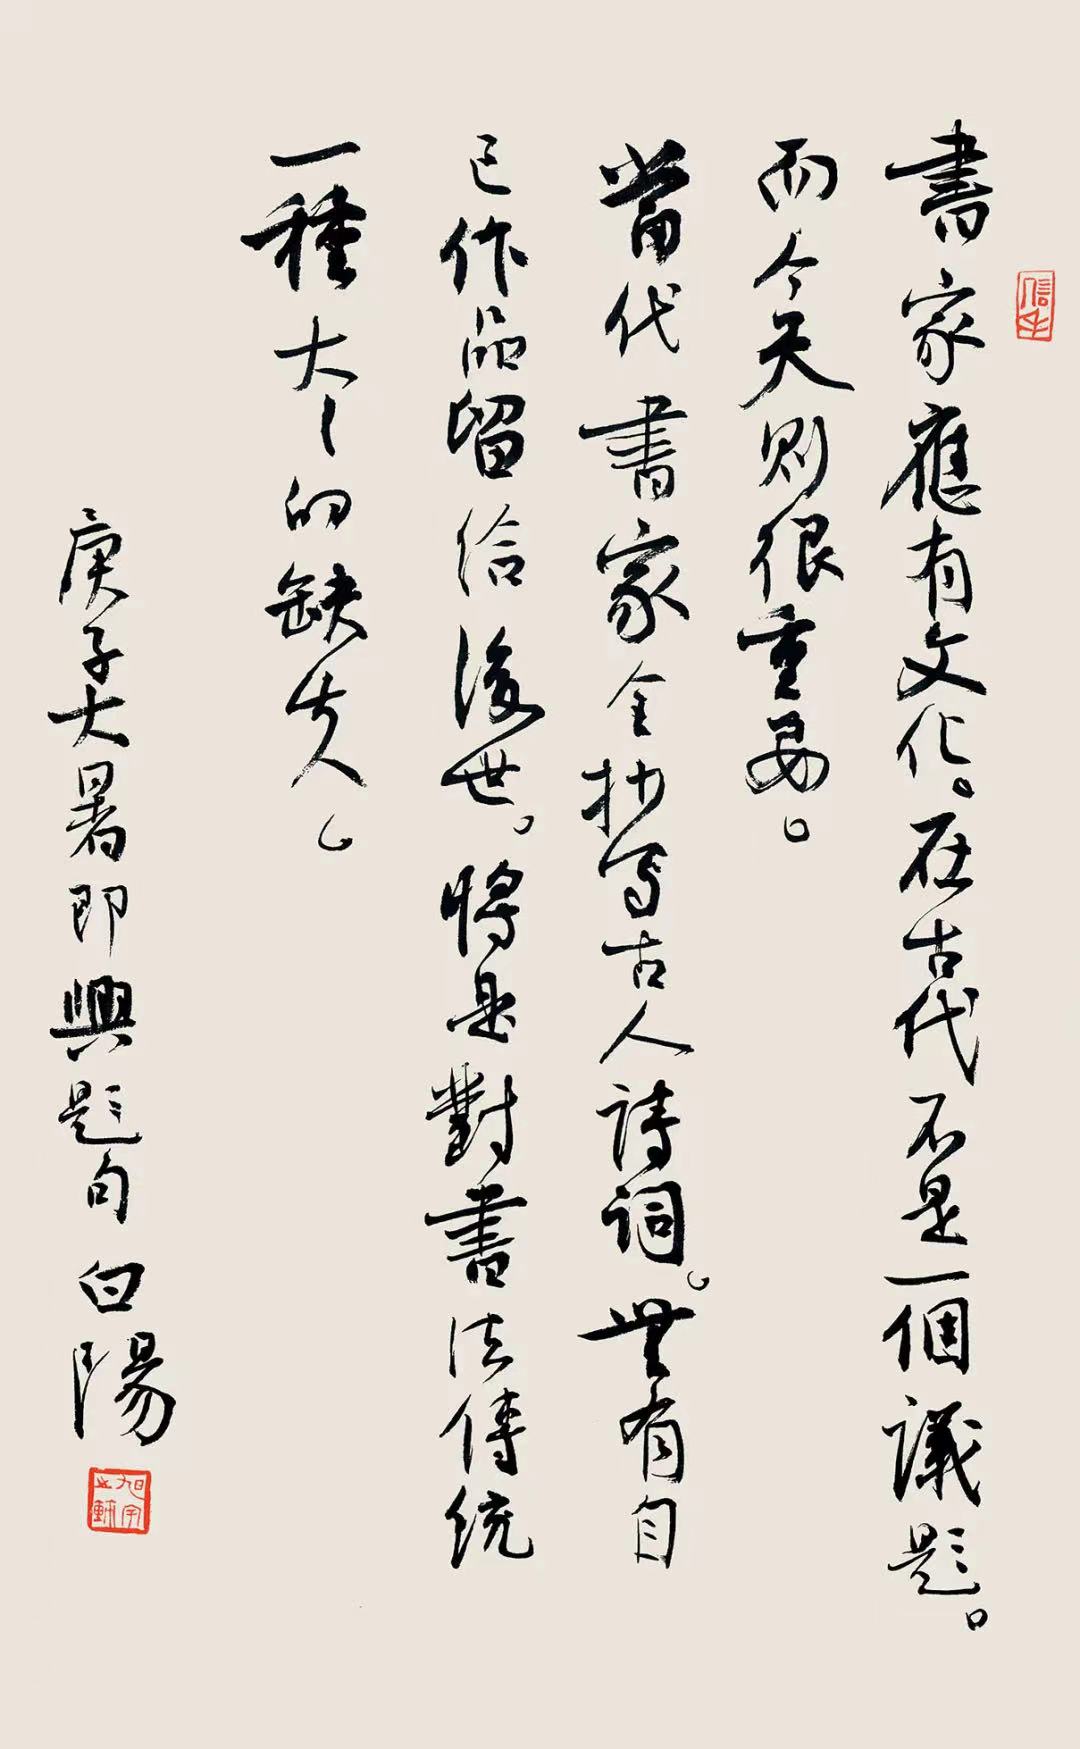 書家應有文化。在古代不是一個議題。
而今天則很重要。
當代書家全抄写古人詩詞。無有自
己作品留給後世。將是對書法傳統
一種大大的缺失。
庚子大暑即興題句 白陽